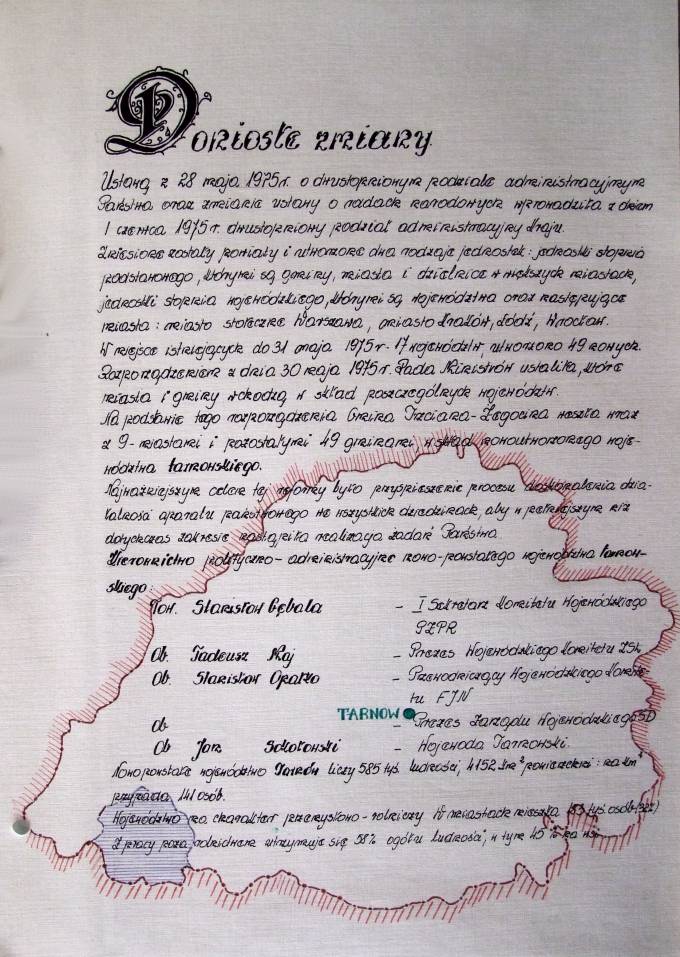 Doniosłe zmiany.
Ustawą z 28 maja 1975r. o dwustopniowym podziale administracyjnym
Państwa oraz zmianie ustawy o radach narodowych wprowadziła z dniem
1 czerwca 1975r. dwustopniowy podział administracyjny kraju.
Zniesione zostały powiaty i utworzone dwa rodzaje jednostek: jednostki stopnia
podstawowego, którymi są gminy, miasta i dzielnice w większych miastach,
jednostki stopnia wojewódzkiego, którymi są województwa oraz następujące
miasta: miasto stołeczne Warszawa, miasto Kraków, Łódź, Wrocław.
W miejsce istniejących do 31 maja 1975r. 17 województw, utworzono 49 nowych.
Rozporządzeniem z dnia 30 maja 1975r. Rada Ministrów ustaliła, które
miasta i gminy wchodzą w skład poszczególnych województw.
Na podstawie tego rozporządzenia Gmina Trzciana-Żegocina weszła wraz
z 9-miastami i pozostałymi 49 gminami, w skład nowoutworzonego woje-
wództwa tarnowskiego.
Najważniejszym celem tej reformy było przyspieszenie procesu doskonalenia dzia-
łalności aparatu państwowego we wszystkich dziedzinach, aby w pełniejszym niż
dotychczas zakresie nastąpiła realizacja zadań Państwa.
Kierownictwo polityczno-administracyjne nowo-powstałego województwa tarnow-
skiego:
Tow. Stanisław Gębala - I Sekretarz Komitetu Wojewódzkiego
PZPR
Ob. Tadeusz Maj - Prezes Wojewódzkiego Komitetu ZSL
Ob. Stanisław Opałko - Przewodniczący Wojewódzkiego Komite-
tu FJN
TARNOW
Ob - Prezes Zarządu Wojewódzkiego SD
Ob Jan Sokołowski - Wojewoda Tarnowski.
Nowopowstałe województwo Tarnów liczy 585 tyś. ludności, 4152 km² powierzchni: na km²
przypada 141 osób.
Województwo ma charakter przemysłowo-rolniczy W miastach mieszka tyś. osób
Z pracy poza rolnictwem utrzymuje się 58% ogółu ludności, w tym 45% na wsi.